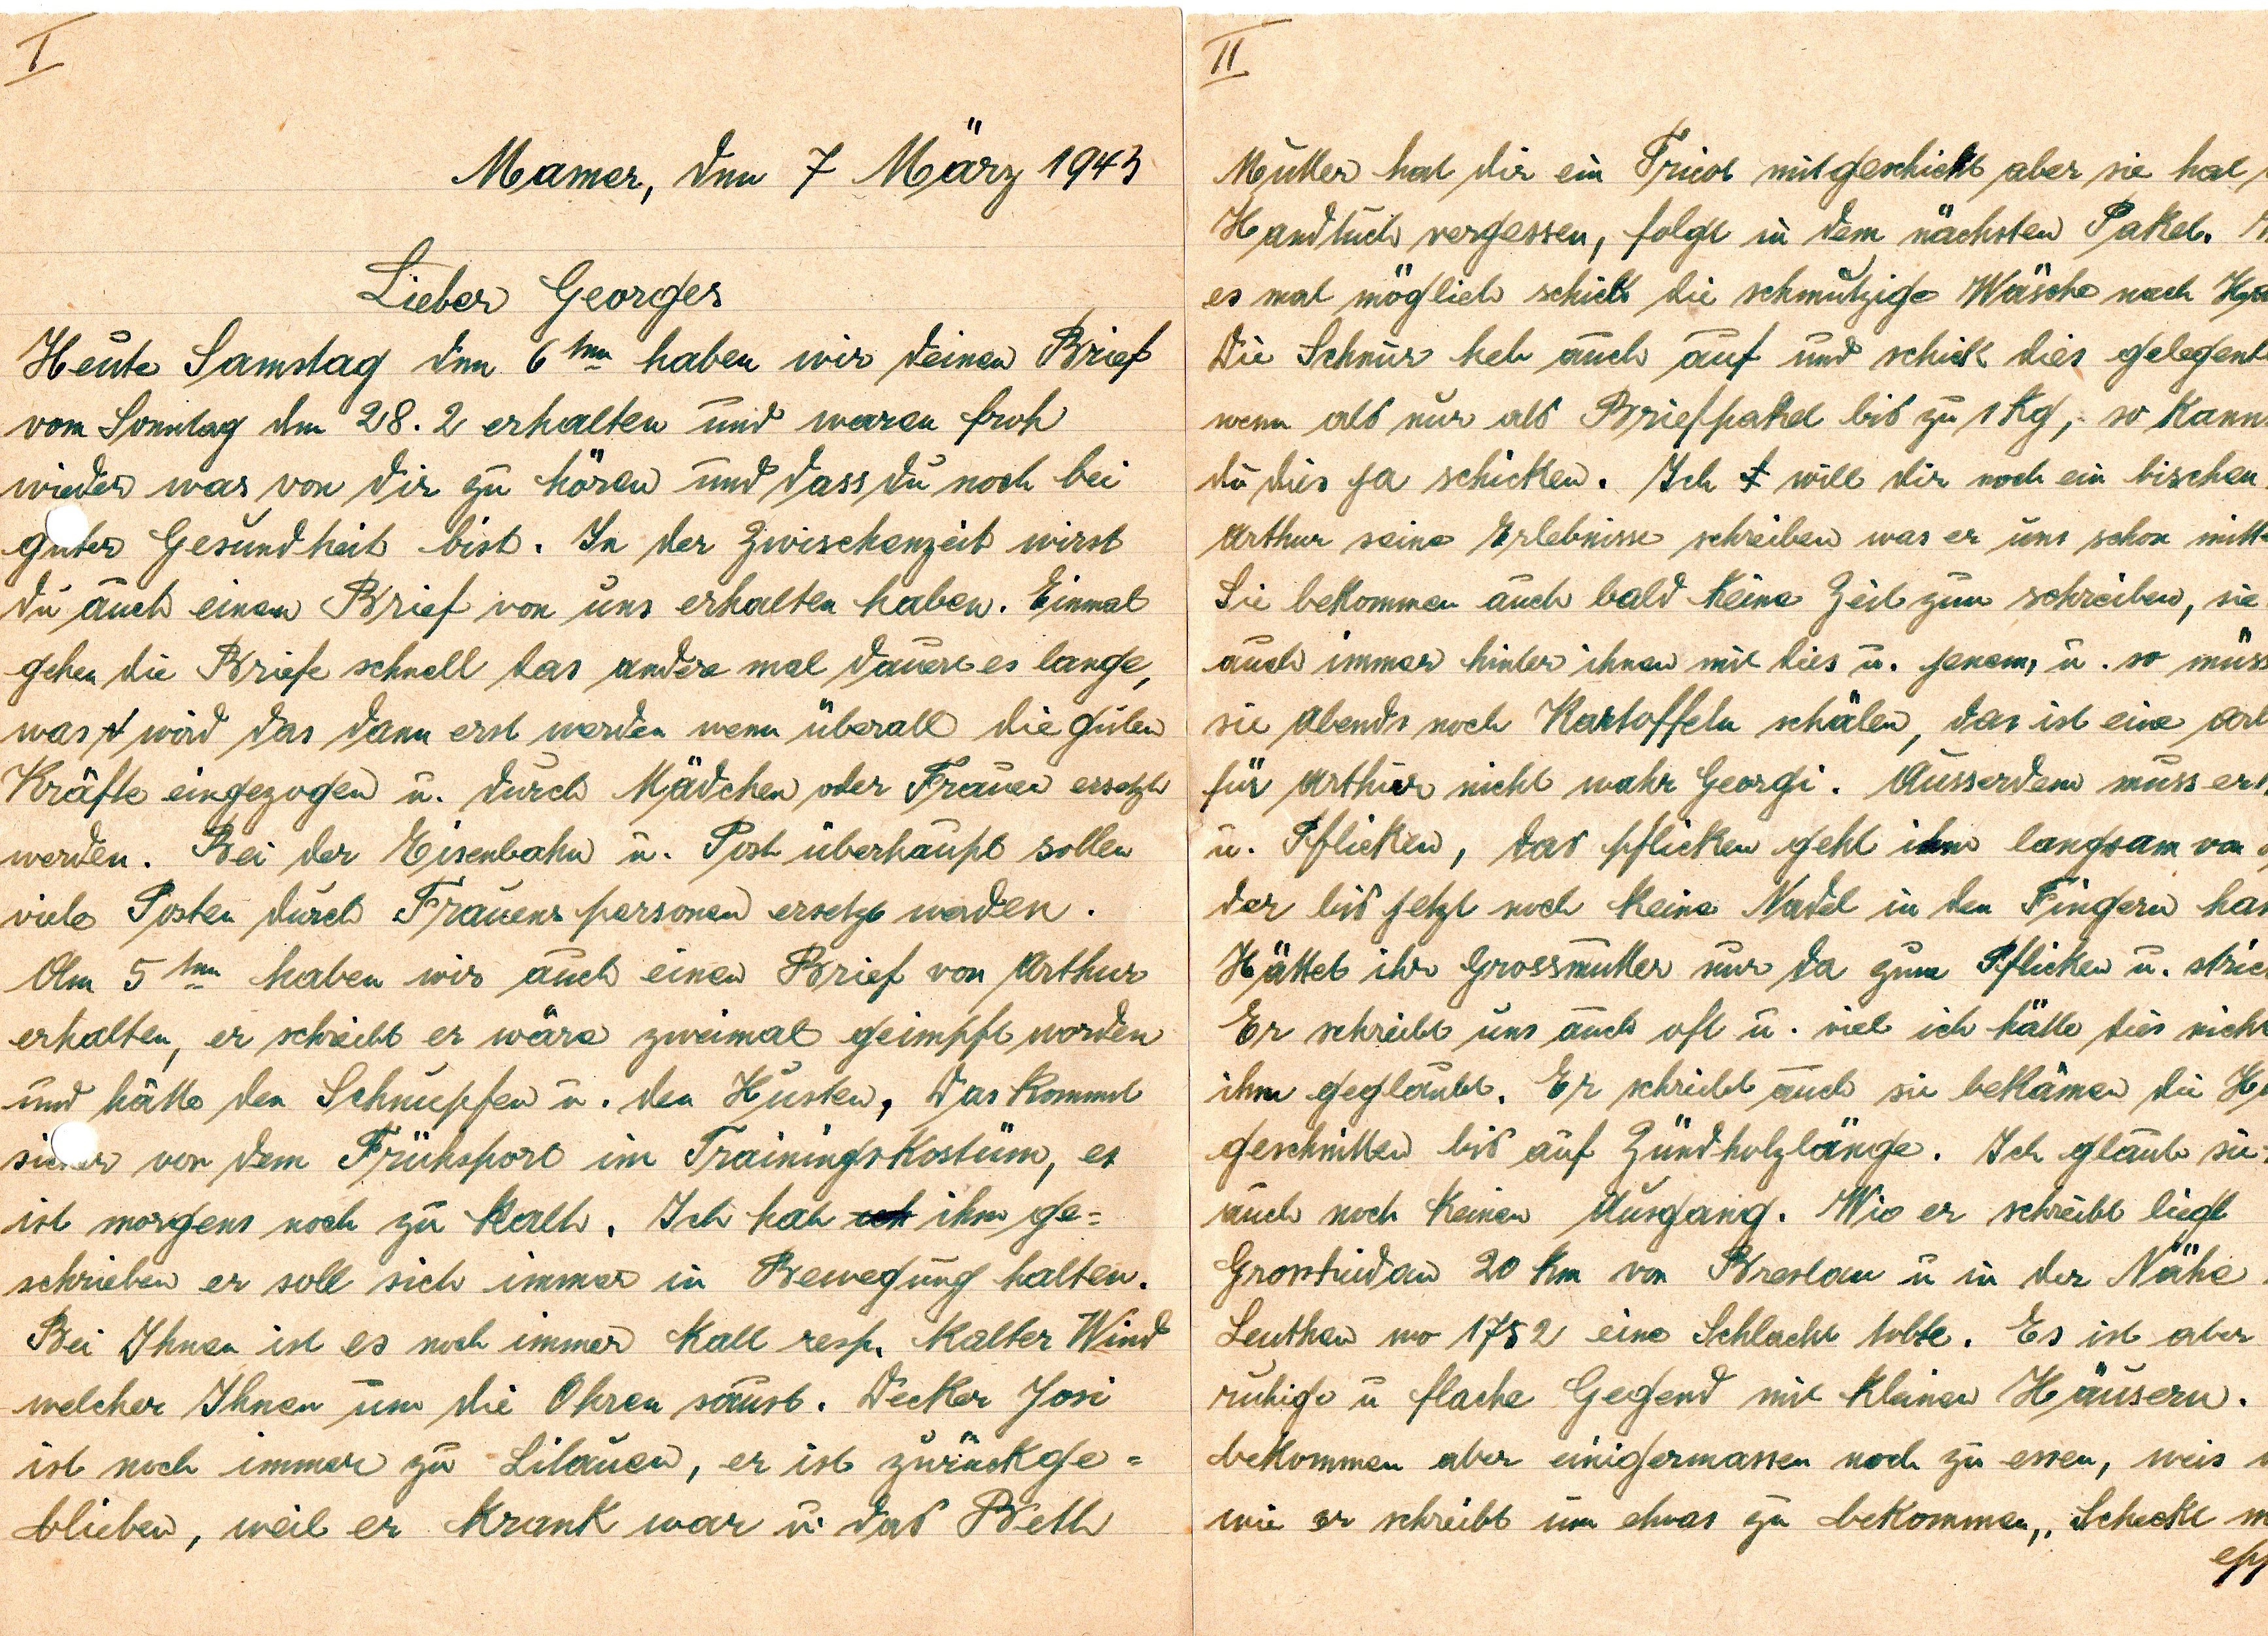 I
Mamer, den 7 März 1943
Lieber Georges
Heute Samstag den 6ten haben wir deinen Brief
vom Sonntag den 28.2 erhalten und waren froh
wieder was von dir zu hören und dass du noch bei
guter Gesundheit bist. In der Zwischenzeit wirst
du auch einen Brief von uns erhalten haben. Einmal
gehen die Briefe schnell das andere mal dauert es lange,
was wird das dann erst werden wenn überall die guten
Kräfte eingezogen u. durch Mädchen oder Frauen ersetzt
werden. Bei der Eisenbahn u. Post überhaupt sollen
viele Posten durch Frauenspersonen ersetzt werden.
Am 5ten haben wir auch einen Brief von Arthur
erhalten, er schreibt er wäre zweimal geimpft worden
und hätte den Schnupfen u. den Husten, das kommt
sicher von dem Frühsport im Trainingskostüm, es
ist morgens noch zu kalt. Ich hab ihm ge=
schrieben er soll sich immer in Bewegung halten.
Bei Ihnen ist es noch immer kalt resp. kalter Wind
welcher Ihnen um die Ohren saust. Decker Josi
ist noch immer zu Litauen, er ist zurückge=
blieben, weil er krank war u. das Bett
II
Mutter hat dir ein Tricot mitgeschickt aber sie hat
Handtuch vergessen, folgt in dem nächsten Paket.
es mal möglich schick die schmutzige Wäsche nach
Die Schnur heb auch auf und schick dies gelegent
wenn als nur als Briefpaket bis zu 1 Kg, so kann
du dies ja schicken. Ich will dir noch ein bischen
Arthur seine Erlebnisse schreiben was er uns schon mitte
Sie bekommen auch bald keine Zeit zum schreiben, sie
auch immer hinter ihnen mit dies u. jenem, u. so müss
sie Abends noch Kartoffeln schälen, das ist eine Arb
für Arthur nicht wahr Georgi. Ausserdem muss er
u. Pflicken, das pflicken geht ihm langsam von
der bis jetzt noch keine Nadel in den Fingern hat
Hättet ihr Grossmutter nur da zum Pflicken u. stric
Er schreibt uns auch oft u. viel ich hätte dies nicht
ihm geglaubt. Er schreibt auch sie bekämen die
geschnitten bis auf Zündholzlänge. Ich glaub sie
auch noch keinen Ausgang. Wie er schreibt liegt
20 Km von Breslau u in der Nähe
Leuthen wo 1752 eine Schlacht tobte. Es ist aber
ruhige u flache Gegend mit kleinen Häusern.
bekommen aber einigermassen noch zu essen, weis
wie er schreibt um etwas zu bekommen, "Scheckt m
epp